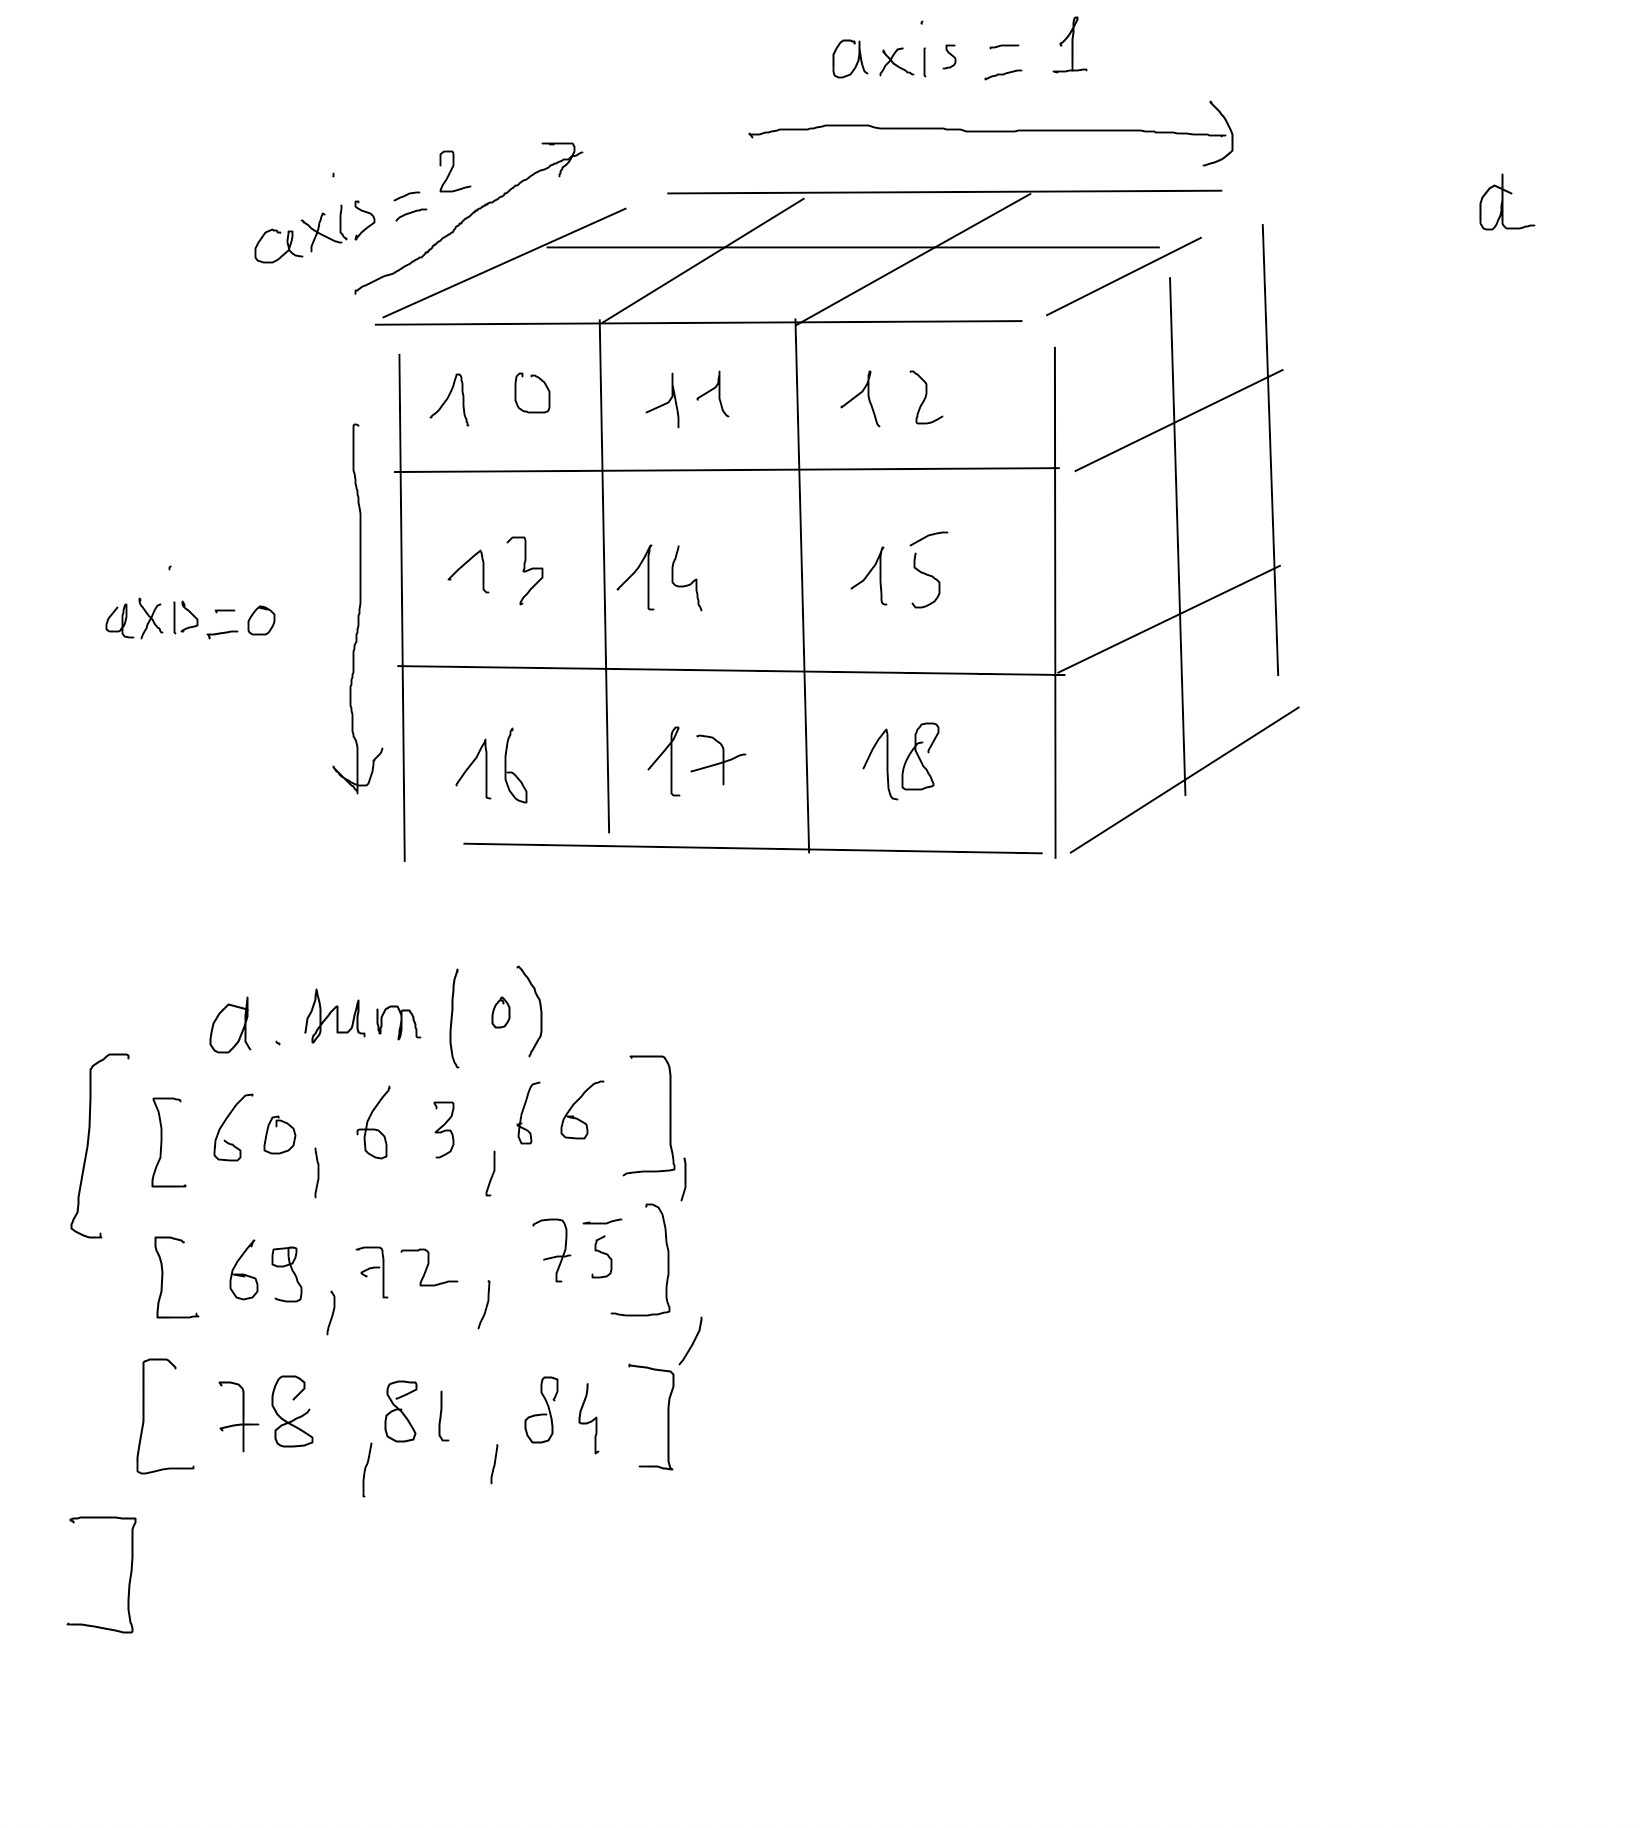 axis = 1
axis=2
a
10 11 12
13 14 15
axis=0
16 17 18
a.sum(0)
[ [60, 63, 66],
[69, 72, 75],
[78, 81, 84]
]